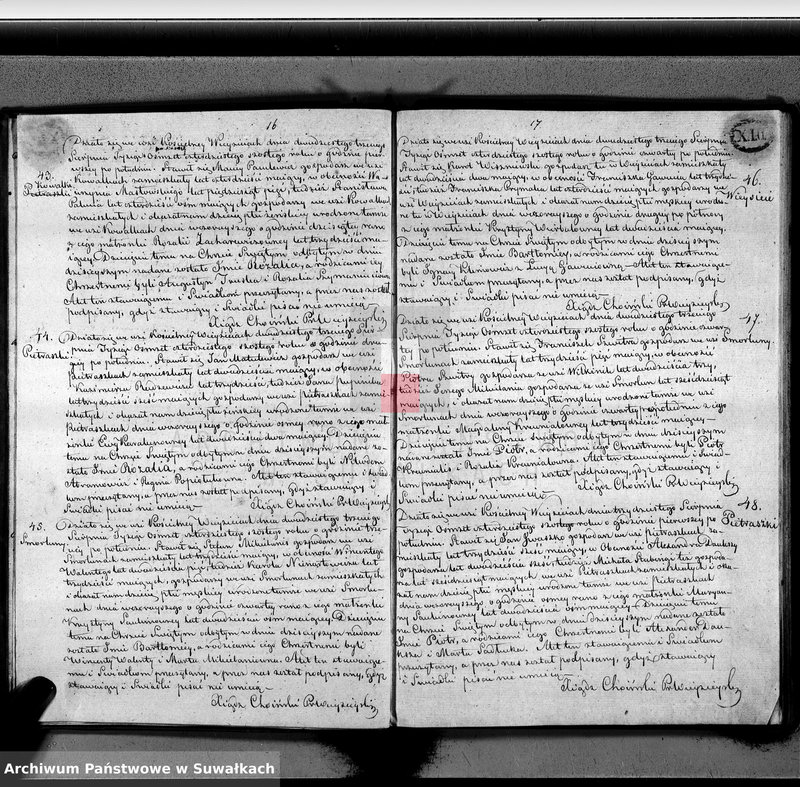 16
43.
Kowalki
Pietraszki
Działo się we wsi Kościelney Wieyściach dnia dwudziestego trzeciego
Sierpnia Tysiąc Osmset czterdziestego szostego roku o godzinie pier
wszey po południu Stawił się
Kowalkach zamieszkały lat czterdzieści maiący, w obecności
lat piędziesiąt pięć, tudzież Stanisława
lat czterdzieści ośm maiących gospodarzy we wsi Kowalkach
zamieszkałych i okazał nam dziecię płci żeńskiey urodzone tamże
we wsi Kowalkach dnia wczorayszego o godzinie dziesiątey rano
z iego małżonki Rozalii Zacharewiczowney lat trzydzieści ma
iącey. Dziecięciu temu na Chrzcie Świętym odbytym w dniu
dzisieyszym nadane zostało Imie Rozalia, a rodzicami iego
Chrzestnemi byli Augustyn i Rozalia Szymanowiczowa
Akt ten stawaiącemu i Świadkom przeczytany, a przez nas został
podpisany, gdyż stawaiący i Świadki pisać nie umieią
Xiądz Choiński Pr. Wieyscieyski
44.
Pietraszki
Działo się we wsi Kościelney Wieyściach dnia dwudziestego trzeciego Sier
pnia Tysiąc Osmset czterdziestego szostego roku o godzinie
po południu. Stawił się Jan Matulewicz gospodarz we wsi
Pietraszkach zamieszkały lat dwadzieścia maiący, w obecności
Kazimierza lat trzydzieści, tudzież Jana
lat trzydzieści sześć maiących gospodarzy we wsi Pietraszkach zamie
szkałych i okazał nam dziecię płci żeńskiey urodzone tamże we wsi
Pietraszkach dnia wczorayszego o godzinie osmey rano z iego mał
żonki Ewy lat dwadzieścia dwa maiącey. Dziecięciu
temu na Chrzcie Świętym odbytym w dniu dzisieyszym nadane zo
stało Imie Rozalia, a rodzicami iego Chrzestnemi byli
i Regina. Akt ten stawaiącemu i Świad
kom przeczytany, a przez nas został podpisany, gdyż stawaiący i
Świadki pisać nie umieią
Xiądz Choiński Pr. Wieyscieyski
45.
Smorluny
Działo się we wsi Kościelney Wieyściach dnia dwudziestego trzeciego
Sierpnia Tysiąc Osmset czterdziestego szostego roku o godzinie trze
ciey po południu. Stawił się Stefan Mikielanis gospodarz we wsi
Smorlunach zamieszkały lat trzydzieści maiący, w obecności Wincentego
Walentego lat dwadzieścia pięć, tudzież Karola lat
trzydzieści maiących, gospodarzy we wsi Smorlunach zamieszkałych
i okazał nam dziecię płci męskiey urodzone tamże we wsi Smorlu
nach dnia wczorayszego o godzinie czwartey rano z iego małżonki
Krystyny lat dwadzieścia ośm maiącey. Dziecięciu
temu na Chrzcie Świętym odbytym w dniu dzisieyszym nadane
zostało Imie Bartłomiey, a rodzicami iego Chrzestnemi byli
Wincenty Walenty i Marta Mikielaniowna. Akt ten stawaiące
mu i Świadkom przeczytany, a przez nas został podpisany, gdyż
stawaiący i Świadki pisać nie umieią
Xiądz Choiński Pr. Wieyscieyski
17
XLII.
46.
Wieyście
Działo się we wsi Kościelney Wieyściach dnia dwudziestego trzeciego Sierpnia
Tysiąc Osmset czterdziestego szostego roku o godzinie czwartey po południu
Stawił się Karol Wiszniewski gospodarz tu w Wieyściach zamieszkały
lat dwadzieścia dwa maiący, w obecności Franciszka lat trzydzie
ści, tudzież Franciszka lat czterdzieści maiących gospodarzy we
wsi Wieyściach zamieszkałych i okazał nam dziecię płci męskiey urodzo
ne tu w Wieyściach dnia wczorayszego o godzinie drugiey po północy
z iego małżonki Krystyny Wierbałowney lat dwadzieścia maiącey.
Dziecięciu temu na Chrzcie Świętym odbytym w dniu dzisieyszym
nadane zostało Imie Bartłomiey, a rodzicami iego Chrzestnemi
byli Ignacy Klimowicz i Łucya. Akt ten stawaiące
mu i Świadkom przeczytany, a przez nas został podpisany, gdyż
stawaiący i Świadki pisać nie umieią
Xiądz Choiński Pr. Wieyscieyski
47.
Smorluny
Działo się we wsi Kościelney Wieyściach dnia dwudziestego trzeciego
Sierpnia Tysiąc Osmset czterdziestego szostego roku o godzinie czwar
tey po południu. Stawił się Franciszek gospodarz we wsi
Smorlunach zamieszkały lat trzydzieści pięć maiący, w obecności
Piotra gospodarza ze wsi lat dwadzieścia trzy,
tudzież Jerzego Mikielanis gospodarza ze wsi Smorlun lat sześćdziesiąt
maiących, i okazał nam dziecię płci męskiey urodzone tamże we wsi
Smorlunach dnia wczorayszego o godzinie czwartey po południu z iego
małżonki Magdaleny lat trzydzieści maiącey.
Dziecięciu temu na Chrzcie Świętym odbytym w dniu dzisieyszym
nadane zostało Imie Piotr, a rodzicami iego Chrzestnemi byli Piotr
i Rozalia. Akt ten stawaiącemu i Świad
kom przeczytany, a przez nas został podpisany, gdyż stawaiący i
Świadki pisać nie umieią
Xiądz Choiński Pr. Wieyscieyski
48.
Pietraszki
Działo się we wsi Kościelney Wieyściach dnia trzydziestego Sierpnia
Tysiąc Osmset czterdziestego szostego roku o godzinie pierwszey po
południu Stawił się Jan we wsi Pietraszkach za
mieszkały lat trzydzieści sześć maiący, w Obecności Alexandra
gospodarza lat dwadzieścia sześć tudzież Michała gospoda
rza lat sześćdziesiąt maiących we wsi Pietraszkach zamieszkałych i oka
zał nam dziecię płci męskiey urodzone tamże we wsi Pietraszkach
dnia wczorayszego o godzinie osmey rano z iego małżonki Maryan
ny lat dwadzieścia ośm maiącey. Dziecięciu temu
na Chrzcie Świętym odbytym w dniu dzisieyszym nadane zostało
Imie Piotr, a rodzicami iego Chrzestnemi byli Alexander
i Marta. Akt ten stawaiącemu i Świadkom
przeczytany, a przez nas został podpisany, gdyż stawaiący
i Świadki pisać nie umieią
Xiądz Choiński Pr. Wieyscieyski
Archiwum Państwowe w Suwałkach